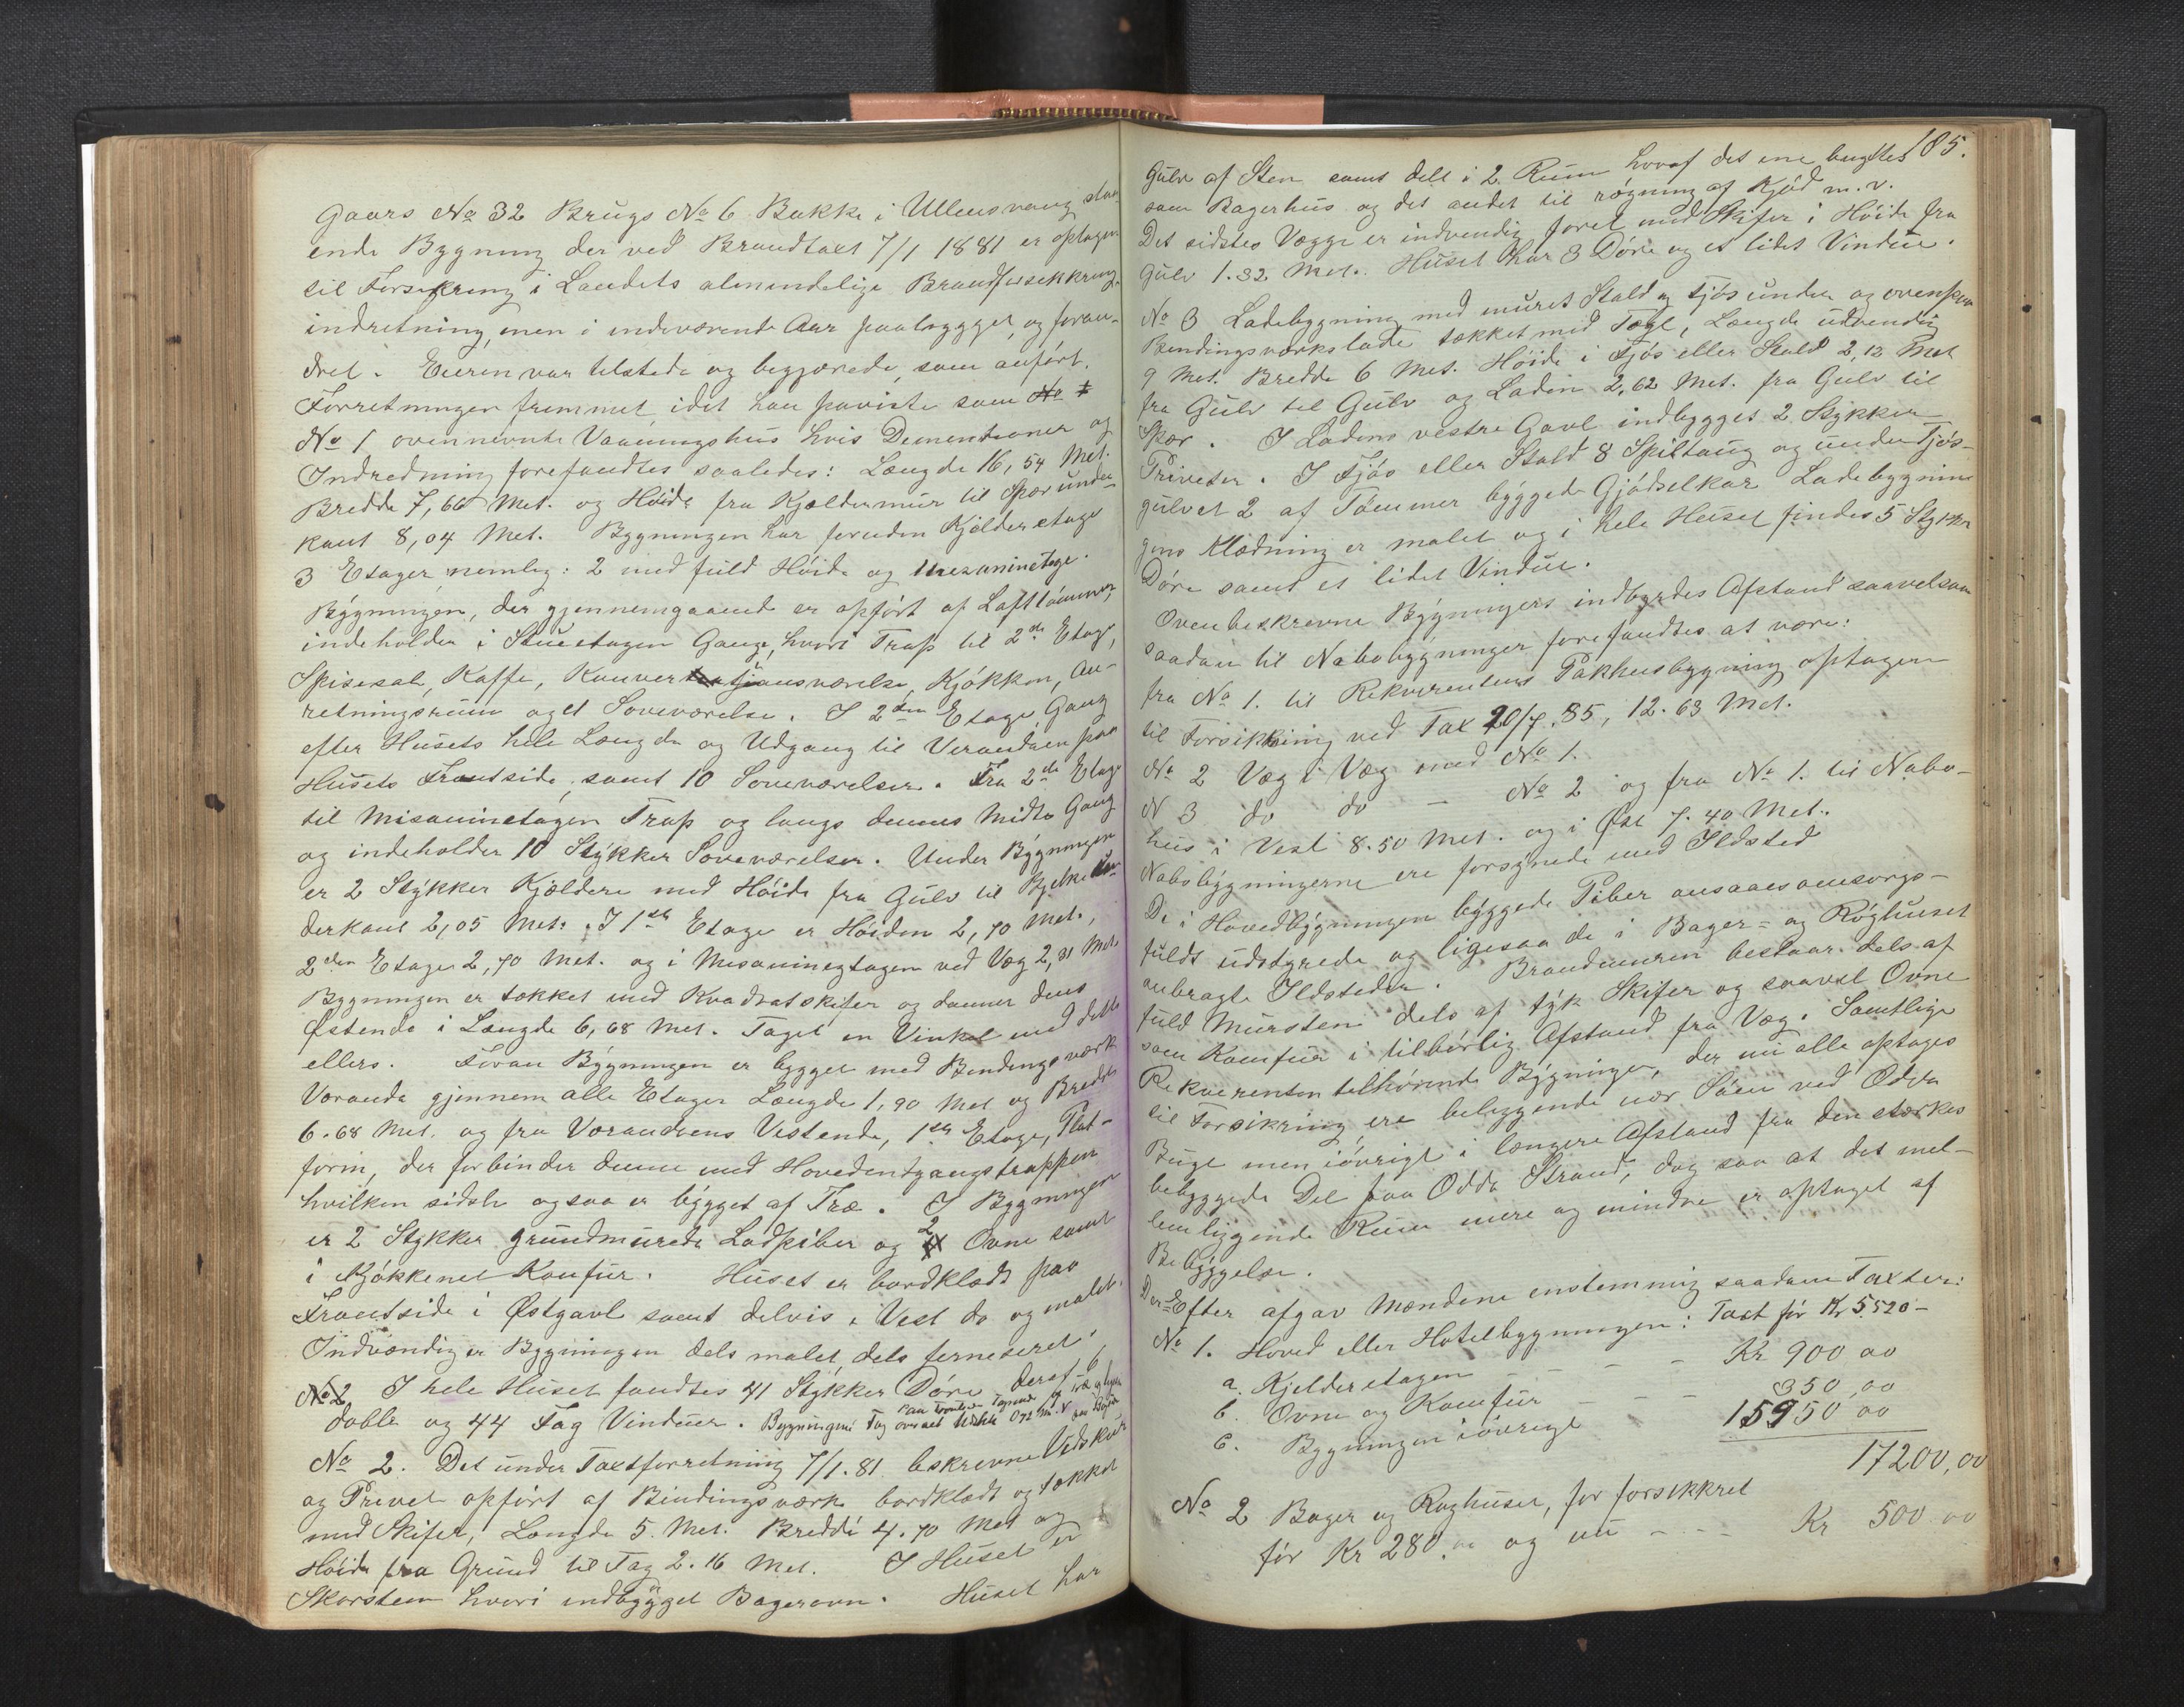 Gaars No 32 Brugs No 6 Bakke i Ullensvang staa-
ende Bygning der ved Brandtaxt 7/1 1881 er optagen
til Forsikring i Landets almindelige Brandforsikkrings
indretning, men i indeværende Aar paabygget og foran-
dret. Eieren var tilstede og begjærede, som anført,
Forretningen fremmet idet han paaviste som No 1
No 1 ovennevnte Vaaningshus hvis Dementioner og
Indredning forefandtes saaledes: Længde 16,54 Met.
Bredde 7,66 Met. og Høide fra Kjældermur til Spær under-
kant 8,04 Met. Bygningen har foruden Kjelderetage
3 Etager nemlig: 2 med fuld Høide og Mezaninetage.
Bygningen, der gjennemgaaend er opført af Lafttømmer,
indeholder i Stuetagen Gange, hvori Trap til 2de Etage,
Spisesal, Kaffe, Konversasjonsværelse, Kjøkken, An-
retningsrum og et Soveværelse. I 2den Etage Gang
efter Husets hele Længde og Udgang til Verandaen paa
Husets Frontside, samt 10 Soveværelser. Fra 2de Etage
til Misaninetagen Trap og langs dennes Midte Gang
og indeholder 10 Stykker Soveværelser. Under Bygningen
er 2 Stykker Kjældere med Høide fra Gulv til Bjelke un-
derkant 2,05 Met. I 1ste Etage er Høiden 2,70 Met.,
2den Etage 2,70 Met. og i Mesaninetagen ved Væg 2,31 Met
Bygningen er tækket med Kvadratskifer og danner dens
Østende i Længde 6,68 Met. Taget en Vinkel med dette
ellers. Foran Bygningen er bygget med Bindingsværk
Veranda gjennem alle Etager Længde 1,90 Met og Bredde
6.68 Met. og fra Verandaens Vestende, 1ste Etage, Plat-
form, der forbinder denne med Hovedindgangstrappen
hvilken sidste ogsaa er bygget af Træ. I Bygningen
er 2 Stykker grundmurede Ladpiber og 2 Ovne samt
i Kjøkkenet Komfur. Huset er bordklædt paa
Frontside i Østgavl samt delvis i Vest do og malet.
Indvendig er Bygningen dels malet, dels ferneseret.
No 2 I hele Huset fandtes 41 Stykker Døre deraf 6
doble og 44 Fag Vinduer. Bygningens Tag
No 2. Det under Taxtforretning 7/1.81 beskrevne Vedskur
og Privet opført af Bindingsværk bordklædt og tækket
med Skifer, Længde 5. Met. Bredde 4.70 Met og
Høide fra Grund til Tag 2.16 Met. I Huset er
Skorsten hvori indbygget Bagerovn. Huset har
185.
Gulv af Sten samt delt i 2 Rum hvoraf det ene bugttes
som Bagerhus og det andet til røgning af Kjød m.v.
Det sidstes Vægge er indvendig foret med Skifer i Høide fra
Gulv 1.32 Met. Huset har 3 Døre og et lidet Vindue.
No 3 Ladebygning med muret Stald og Fjøs under og ovenpaa
Bendingsværkslade tækket med Tagl, Længde udvendig
9 Met. Bredde 6 Met. Høide i Fjøs eller Stald 2,12 Met
fra Gulv til Gulv og Laden 2,62 Met. fra Gulv til
Spær. I Ladens vestre Gavl indbygges 2 Stykker
Priveter. I Fjøs eller Stald 8 Spiltaug og under Fjøs-
gulvet 2 af Tømmer byggede Gjødselkar Ladebygnin-
gens Klædning er malet og i hele Huset findes 5 Stykker
Døre samt et lidet Vindue.
Ovenbeskrevne Bygningers indbyrdes Afstand saavelsom
saadan til Nabobygninger forefandtes at være:
fra No 1. til Rekvirentens Pakhusbygning optagen
til Forsikkring ved Tax 20/7.85, 12.63 Met.
No 2 Væg i Væg med No 1.
N 3 do do - No 2 og fra No 1. til Nabo-
hus i Vest 8.50 Met. og i Øst 7.40 Met.
Nabobygningerne ere forsynede med Ildsted
De i Hovedbygningen byggede Piber ansaaes omsorgs-
fuldt udstyrede og ligesaa de i Bager- og Røghuset
anbragte Ildsteder. Brandmuren bestaar dels af
fuld Mursten dels af tyk Skifer og saavel Ovne
som Komfur i tilbørlig Afstand fra Væg. Samtlige
Rekvirenten tilhørende Bygninger, der nu alle optages
til Forsikring, ere beliggende nær Søen ved Odda
Bugt men iøvrigt i længere Afstand fra den stærkes
bebyggede Del paa Odda Strand, dog saa at det mel-
lemliggende Rum mere og mindre er optaget af
Bebyggelse.
Der Efter afgav Mændene enstemmig saadane Taxter:
No 1. Hoved eller Hotelbygningen: Taxt før Kr 5520-
a. Kjelderetagen - - - Kr 900 00
b. Ovne og Komfur - - 350,00
c. Bygningen iøvrigt 15950 00
17200,00
No 2 Bager og Røghuset, før forsikkret
før Kr 280.00 og nu - - - Kr 500 00